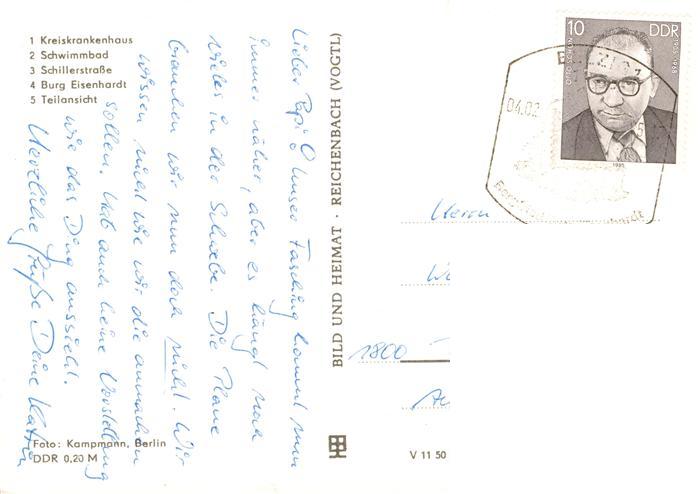 1 Kreiskrankenhaus
2 Schwimmbad
3 Schillerstraße
4 Burg Eisenhardt
5 Teilansicht
Lieber Papi! Unser Fasching kommt nun
immer näher, aber es hängt noch
vieles in der Schwebe. Die Plane
brauchen wir nun doch nicht. Wir
wissen nicht wie wir die anmachen
sollen. Hab auch keine Vorstellung
wie das Ding aussieht.
Herzliche Grüße Deine Katrin
Foto: Kampmann, Berlin
DDR 0,20 M
BILD UND HEIMAT · REICHENBACH (VOGTL)
V 11 50
10 DDR
OTTO SCHÖN
1905-1968
1985
04.02
Herrn
1800